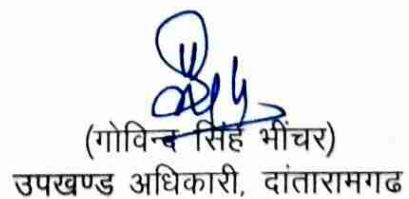 (गोविन्द सिंह भींचर)
उपखण्ड अधिकारी, दांतारामगढ